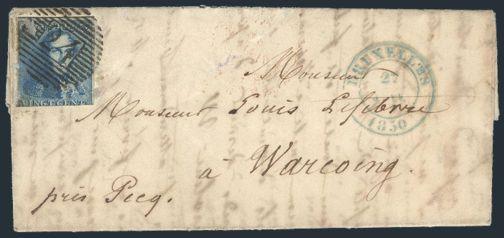 BRUXELLES
1850
VINGT CENT
Monsieur
Monsieur Louis Lefebvre
à Warcoing.
près Pecq.